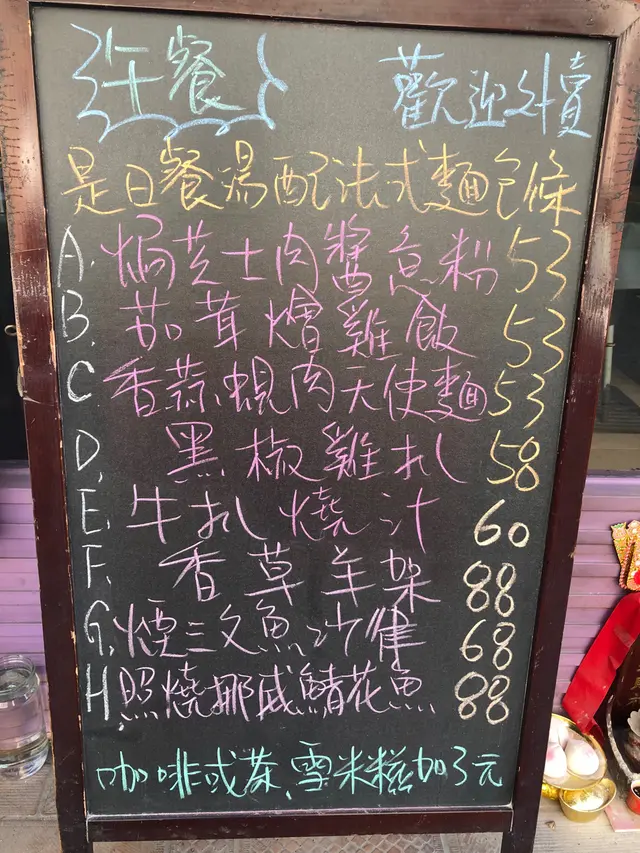 午餐 歡迎外賣
是日餐湯配法式麵包條
A. 焗芝士肉醬意粉 53
B. 茄茸燴雞飯 53
C 香蒜蜆肉天使麵 53
D. 黑椒雞扒 58
E. 牛扒燒汁 60
F. 香草羊架 88
G. 煙三文魚沙律 68
H 照燒挪威鯖花魚 88
咖啡或茶、雪米糍加3元